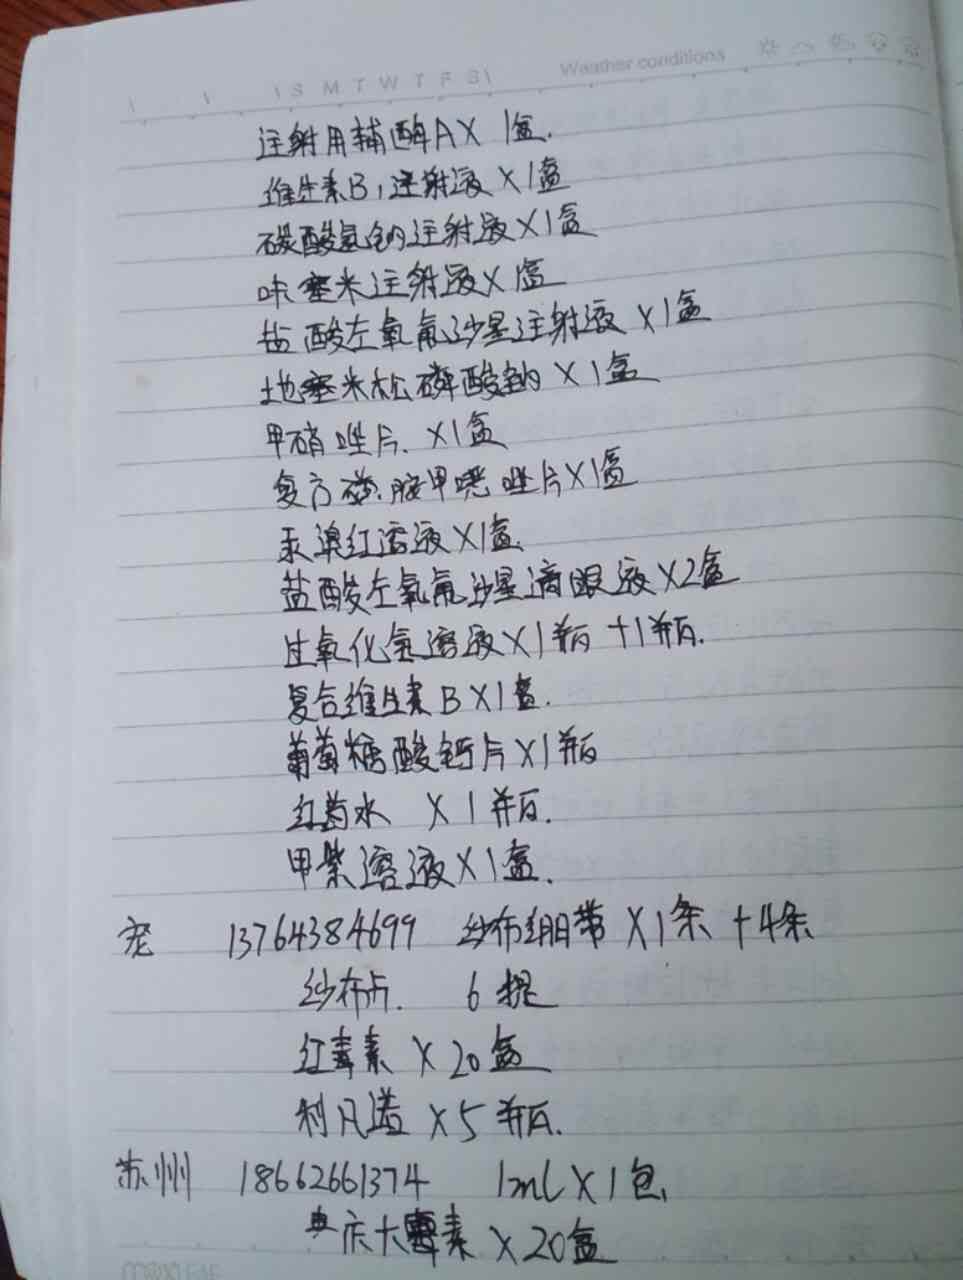 S M T W T F S Weather conditions
注射用辅酶A X 1盒.
维生素B1注射液 X1盒
碳酸氢钠注射液X1盒
呋塞米注射液X1盒
盐酸左氧氟沙星注射液 X1盒
地塞米松磷酸钠 X1盒
甲硝唑片. X1盒
复方磺胺甲噁唑片X1盒
汞溴红溶液X1盒
盐酸左氧氟沙星滴眼液X2盒
过氧化氢溶液X1瓶 +1瓶.
复合维生素B X1盒.
葡萄糖酸钙片X1瓶
红药水 X1瓶.
甲紫溶液X1盒.
宠 13764384699 纱布绷带 X1条 +4条
纱布片. 6提
红霉素 X20盒
利凡诺 X5瓶.
苏州 18662661374 1ml X1包
庆大霉素 X20盒